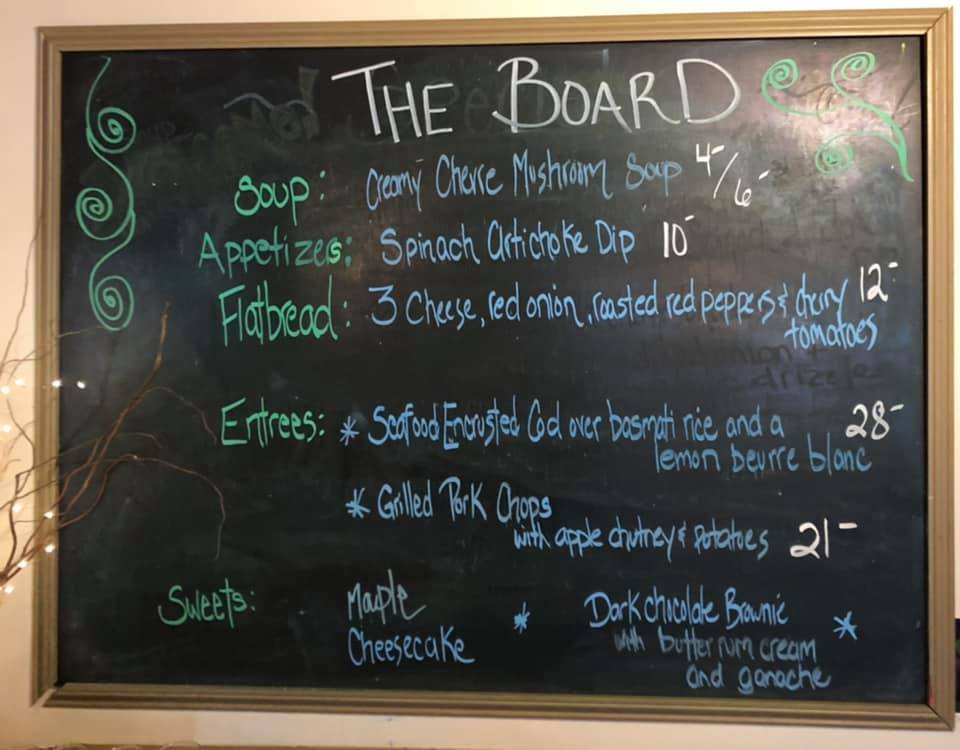 THE BOARD
Soup: Creamy Chevre Mushroom Soup 4-/6-
Appetizers: Spinach Artichoke Dip 10-
Flatbread: 3 Cheese, red onion, roasted red peppers & cherry 12-
tomatoes
drizzle
Entrees: * Seafood Encrusted Cod over basmati rice and a 28-
lemon beurre blanc
* Grilled Pork Chops
with apple chutney & potatoes 21-
Sweets: Maple * Dark chocolate Brownie *
Cheesecake with butter rum cream
and ganache